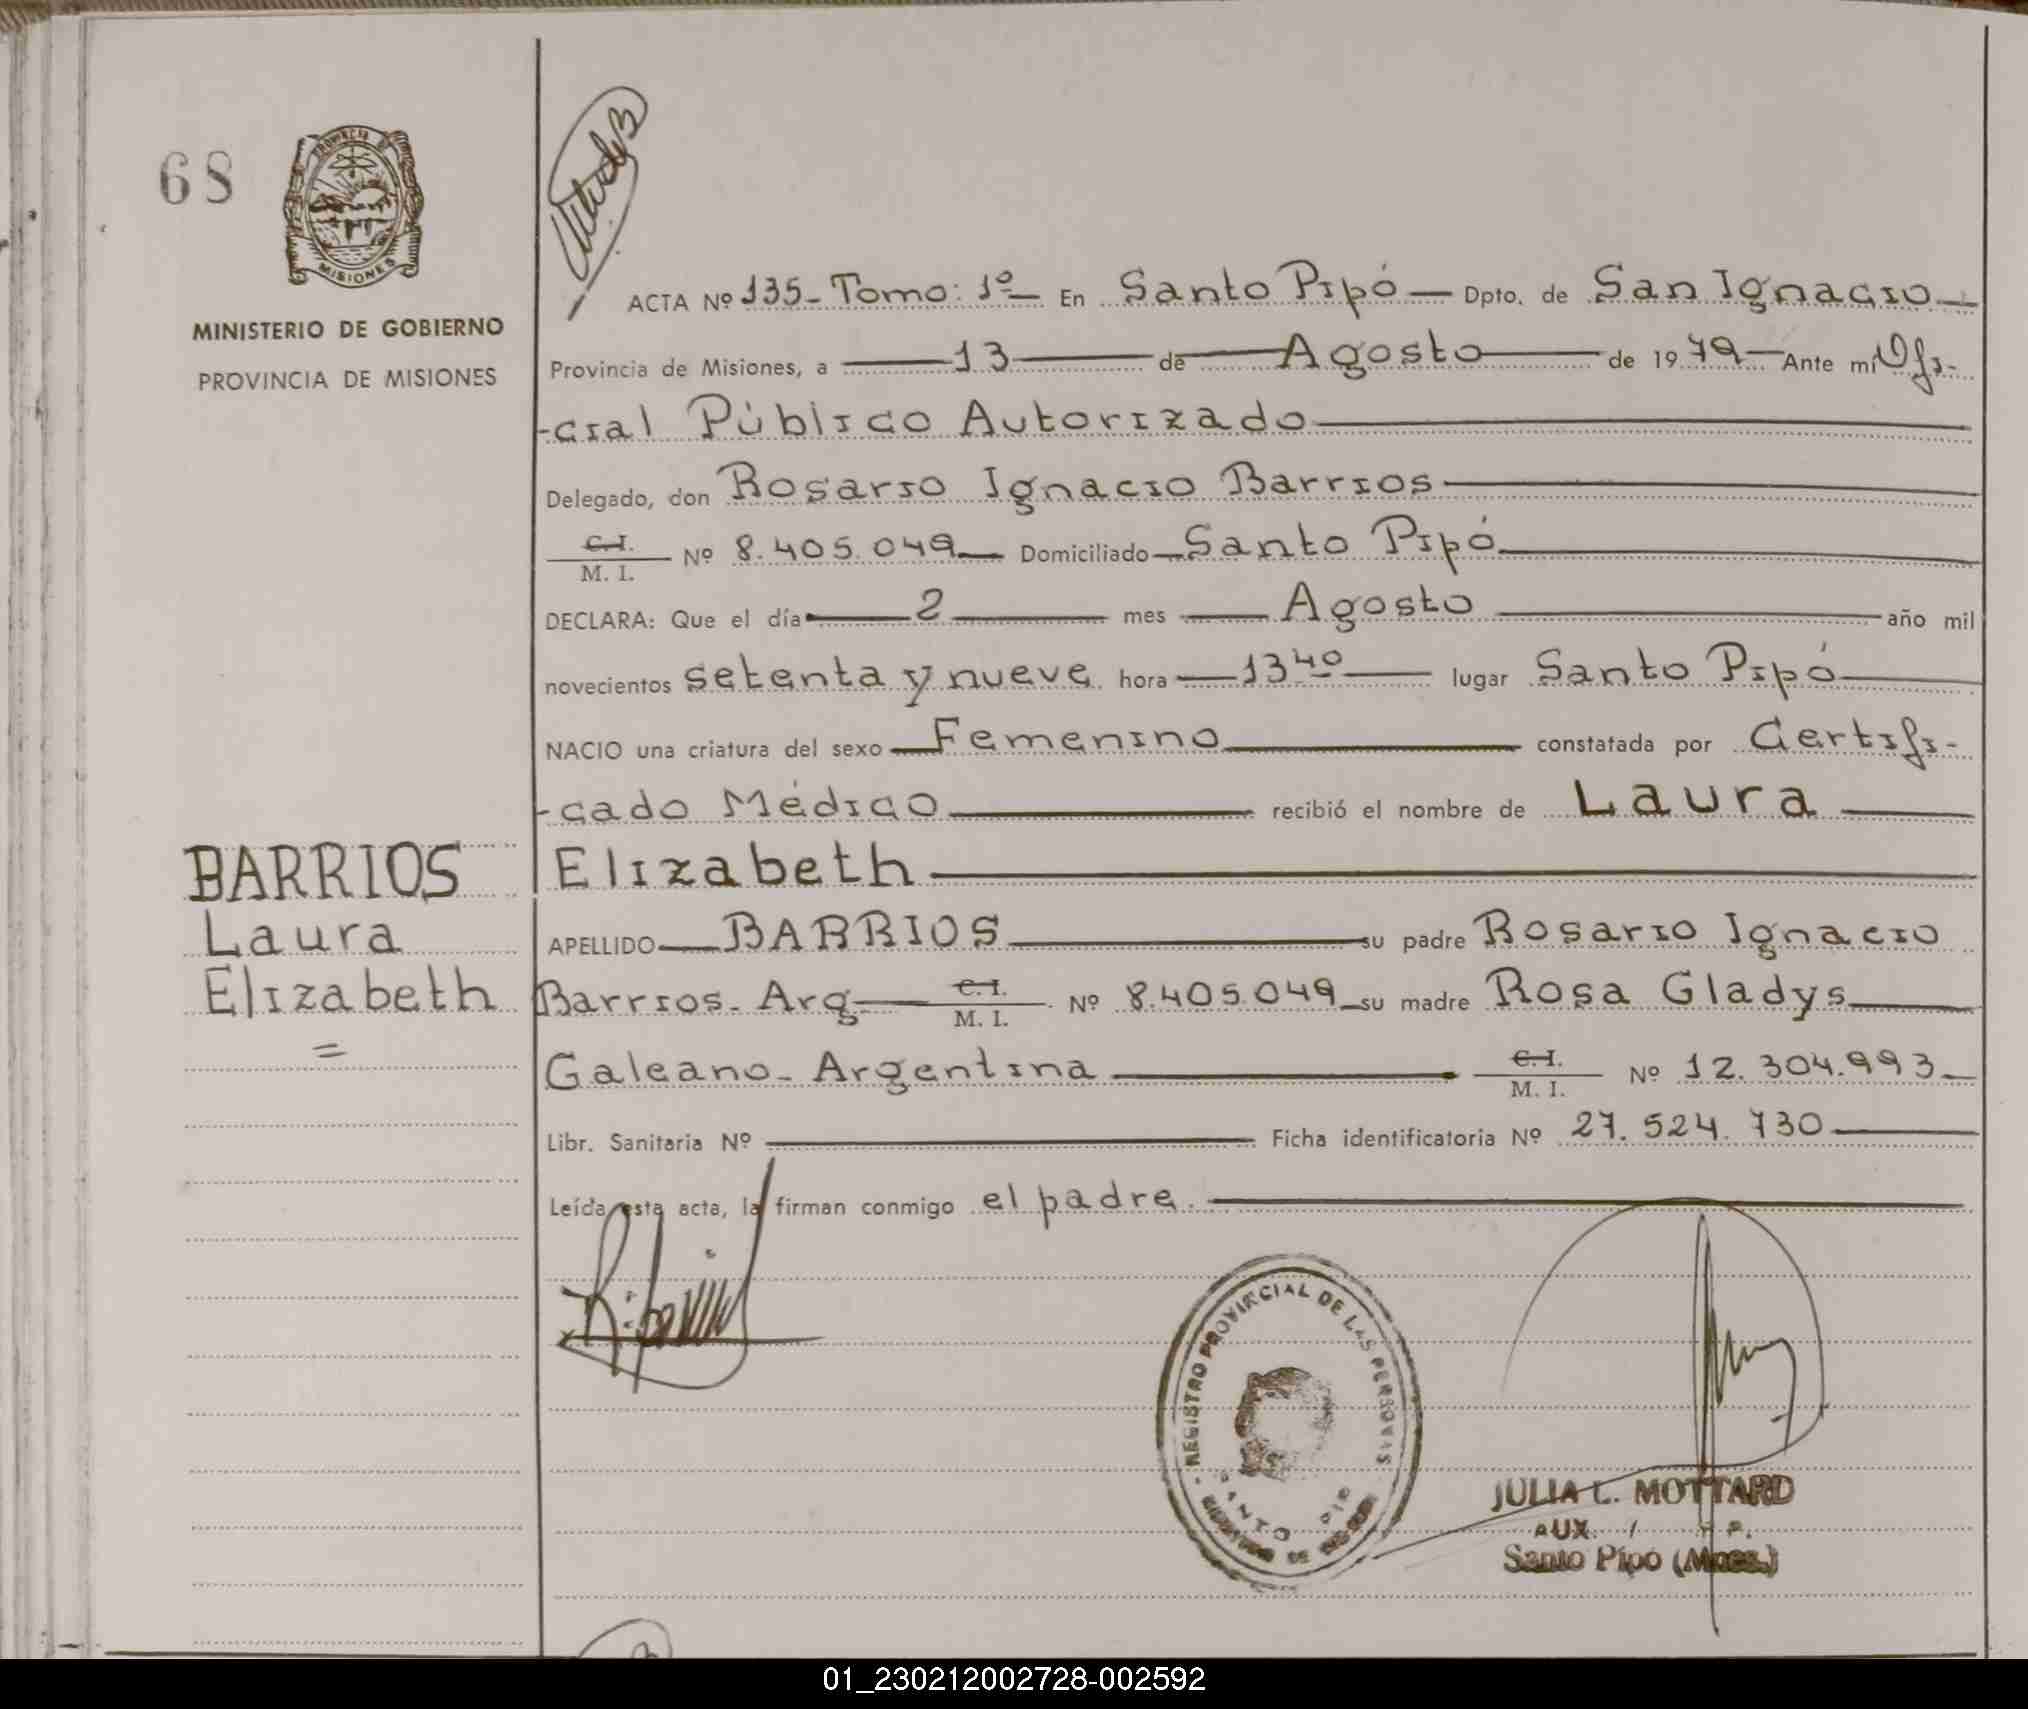 68
PROVINCIA DE
MISIONES
MINISTERIO DE GOBIERNO
PROVINCIA DE MISIONES
ACTA Nº 135- Tomo: 1º- En Santo Pipó - Dpto. de San Ignacio -
Provincia de Misiones, a 13 de Agosto de 1979 - Ante mí Ofi-
-cial Público Autorizado
Delegado, don Rosario Ignacio Barrios
C.I.
M. I. Nº 8.405.049 Domiciliado Santo Pipó
DECLARA: Que el día 2 mes Agosto año mil
novecientos setenta y nueve hora 13 40 lugar Santo Pipó
NACIO una criatura del sexo Femenino constatada por Certifi-
-cado Médico recibió el nombre de Laura
Elizabeth
BARRIOS
Laura
Elizabeth
=
APELLIDO BARRIOS su padre Rosario Ignacio
Barrios- Arg C.I.
M. I. Nº 8.405.049 su madre Rosa Gladys
Galeano- Argentina C.I.
M. I. Nº 12.304.993
Libr. Sanitaria Nº Ficha identificatoria Nº 27.524.730
Leída esta acta, la firman conmigo el padre.
REGISTRO PROVINCIAL DE LAS PERSONAS
SANTO PIPO
JULIA L. MOTTARD
AUX.
Santo Pipó (Mnes.)
01_230212002728-002592